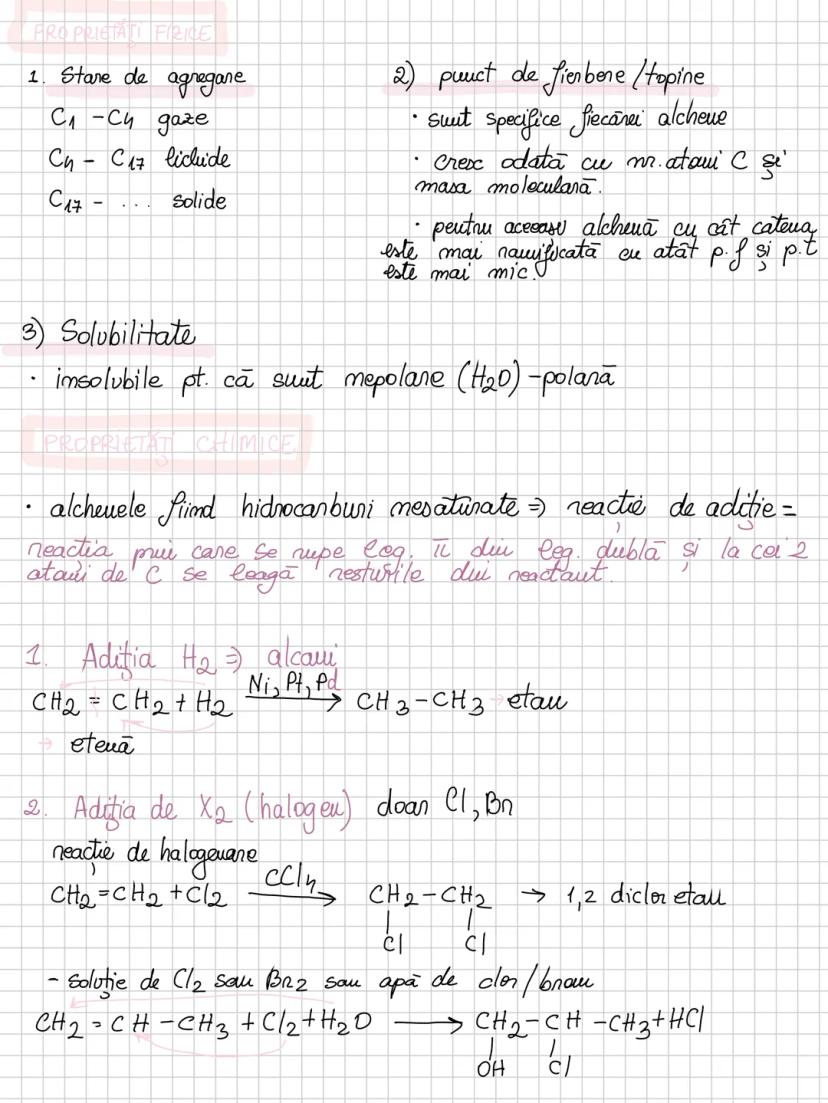 PROPRIETĂȚI FIZICE
1. Stare de agregare
C1 - C4 gaze
C4 - C17 lichide
C17 - ... solide
2) punct de fierbere/topire
· sunt specifice fiecărei alchene
· cresc odată cu nr. atomi C și
masa moleculară.
· pentru aceeași alchenă cu cât catena
este mai ramificată cu atât p.f și p.t
este mai mic.
3) Solubilitate
· insolubile pt. că sunt nepolare (H2O) - polară
PROPRIETĂȚI CHIMICE
· alchenele fiind hidrocarburi nesaturate => reacție de adiție =
reacția prin care se rupe leg. π din leg. dublă și la cei 2
atomi de C se leagă resturile din reactant.
1. Adiția H2 => alcani
CH2 = CH2 + H2 Ni, Pt, Pd → CH3 - CH3 → etan
→ etenă
2. Adiția de X2 (halogen) doar Cl, Br
reacție de halogenare
CH2=CH2 + Cl2 CCl4 → CH2 - CH2 → 1,2 diclor etan
Cl Cl
- soluție de Cl2 sau Br2 sau apă de clor/brom
CH2 = CH - CH3 + Cl2 + H2O → CH2 - CH - CH3 + HCl
OH Cl